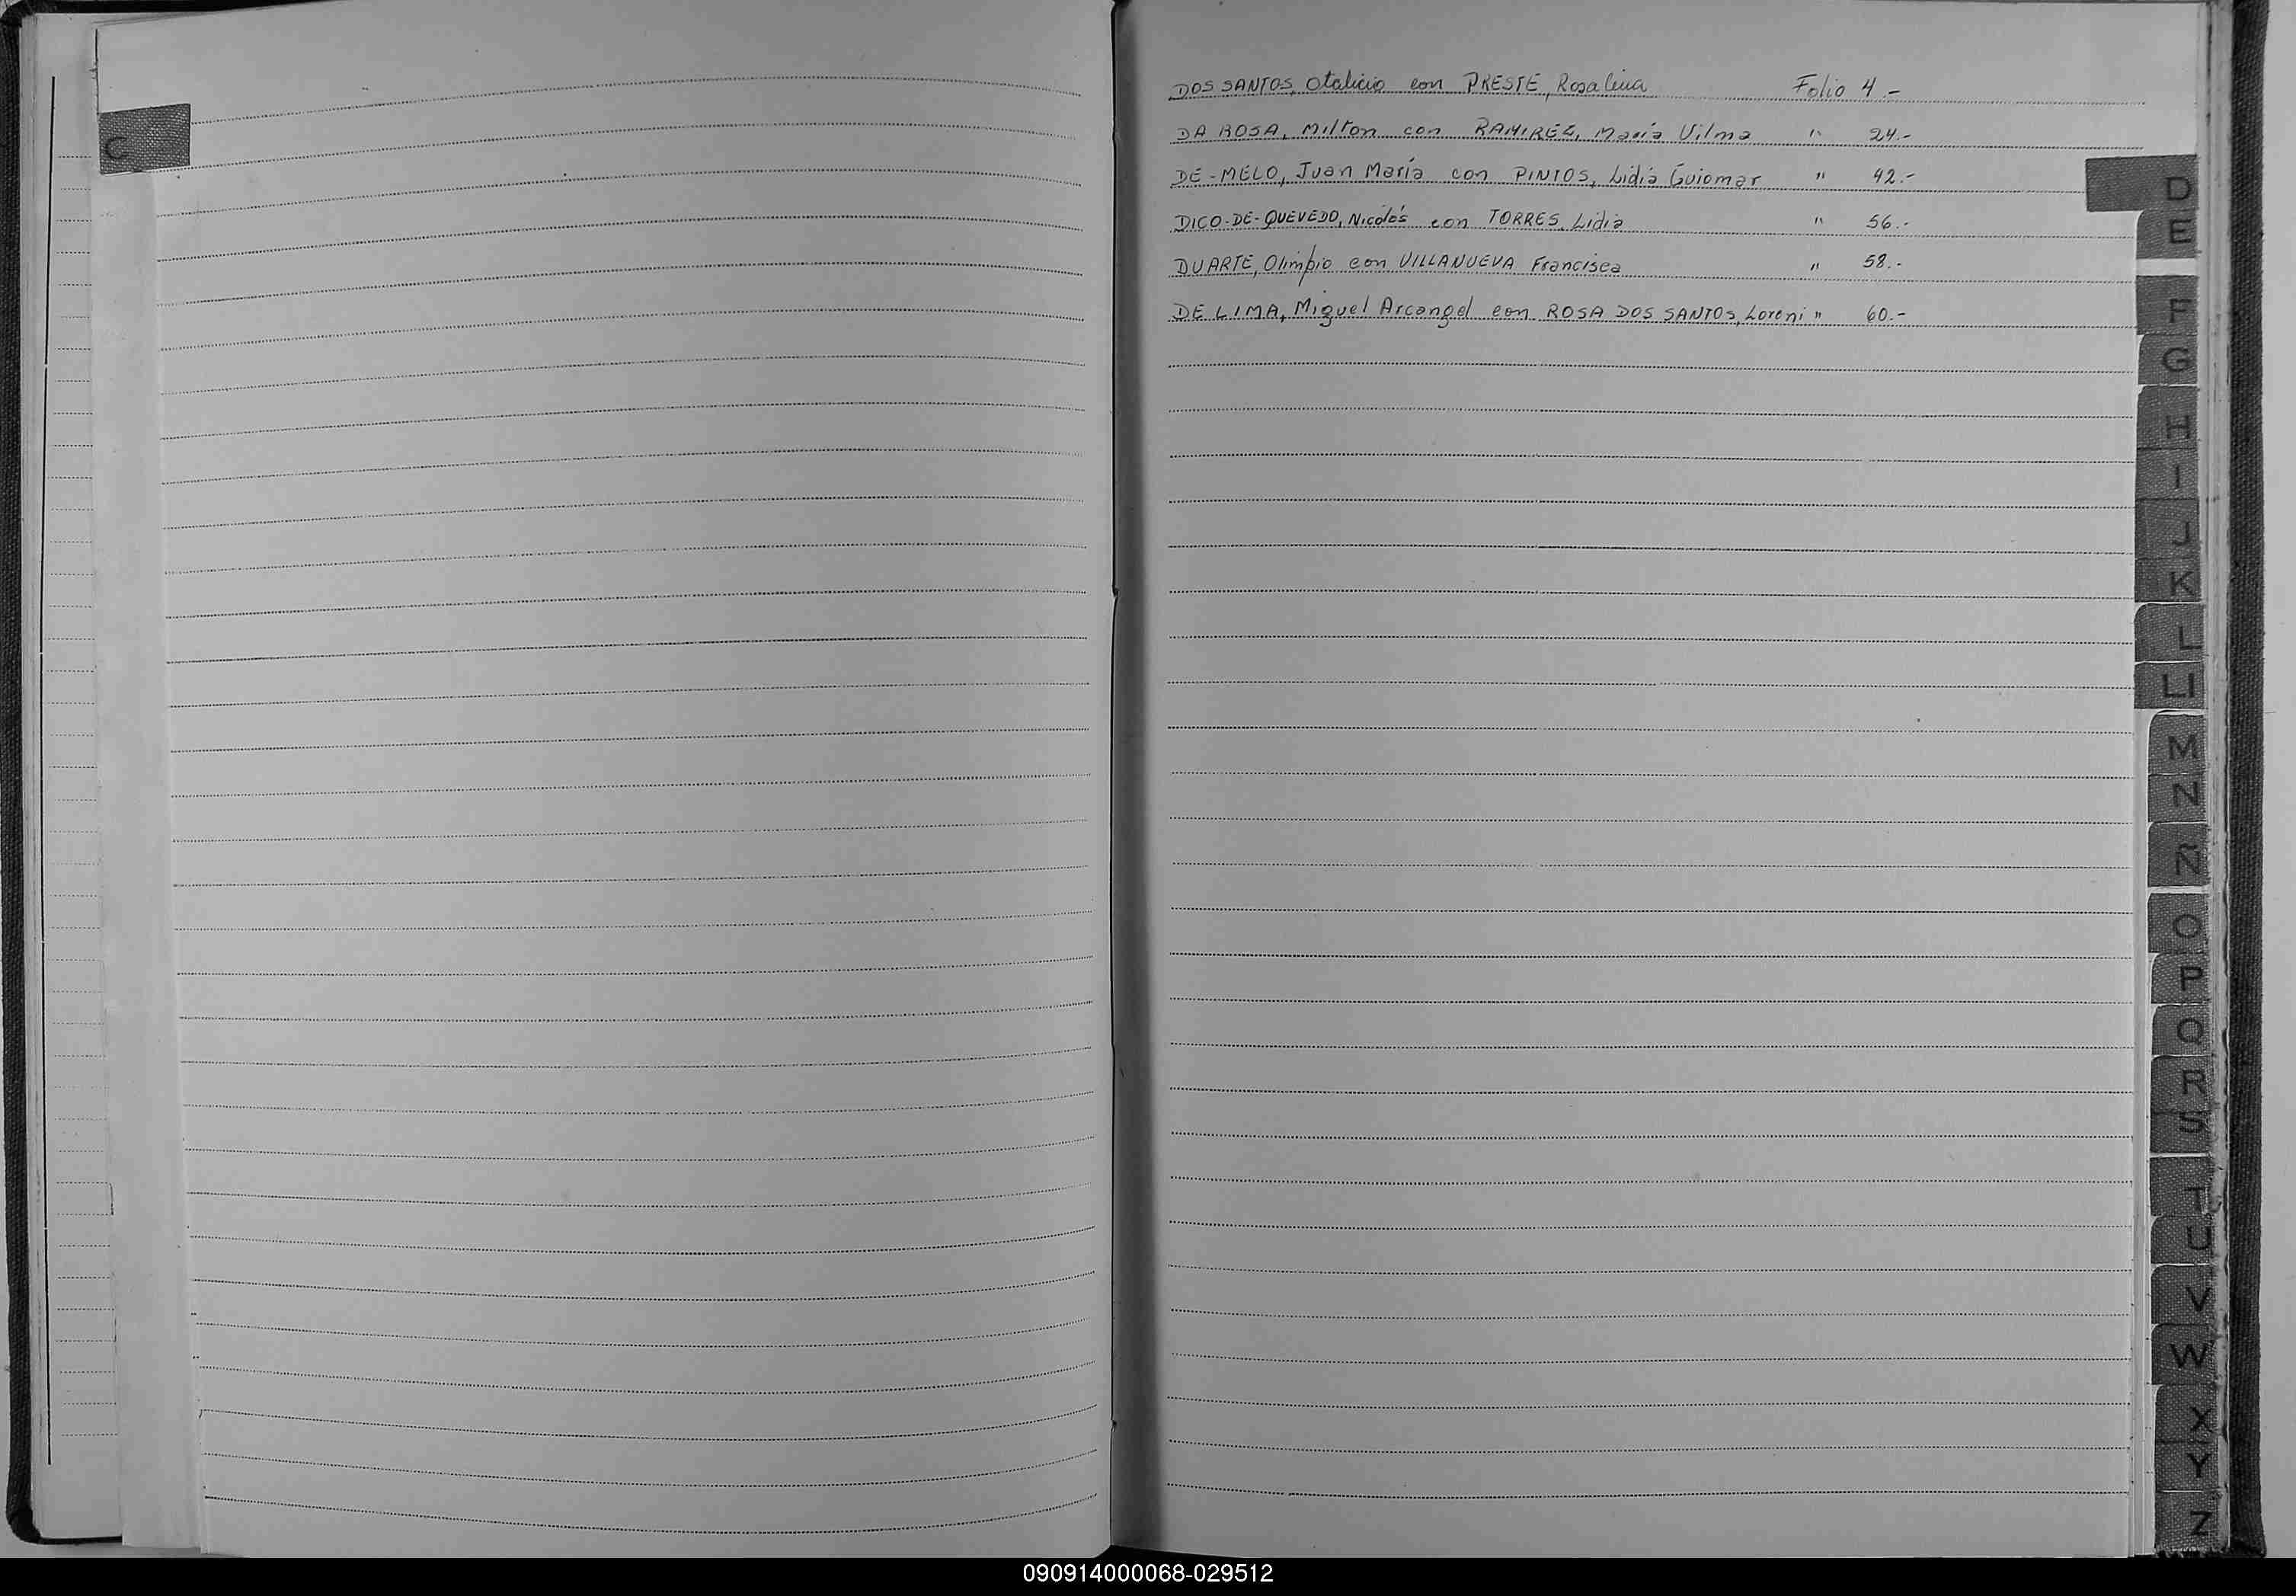 C
DOS SANTOS, Otalicio con PRESTE, Rosalina Folio 4.-
DA ROSA, Milton con RAMIREZ, María Vilma " 24.-
DE-MELO, Juan María con PINTOS, Lidia Guiomar " 42.-
DICO-DE-QUEVEDO, Nicolás con TORRES, Lidia " 56.-
DUARTE, Olimpio con VILLANUEVA Francisca " 58.-
DE LIMA, Miguel Arcangel con ROSA DOS SANTOS, Loreni " 60.-
D
E
F
G
H
I
J
K
L
Ll
M
N
Ñ
O
P
Q
R
S
T
U
V
W
X
Y
Z
090914000068-029512